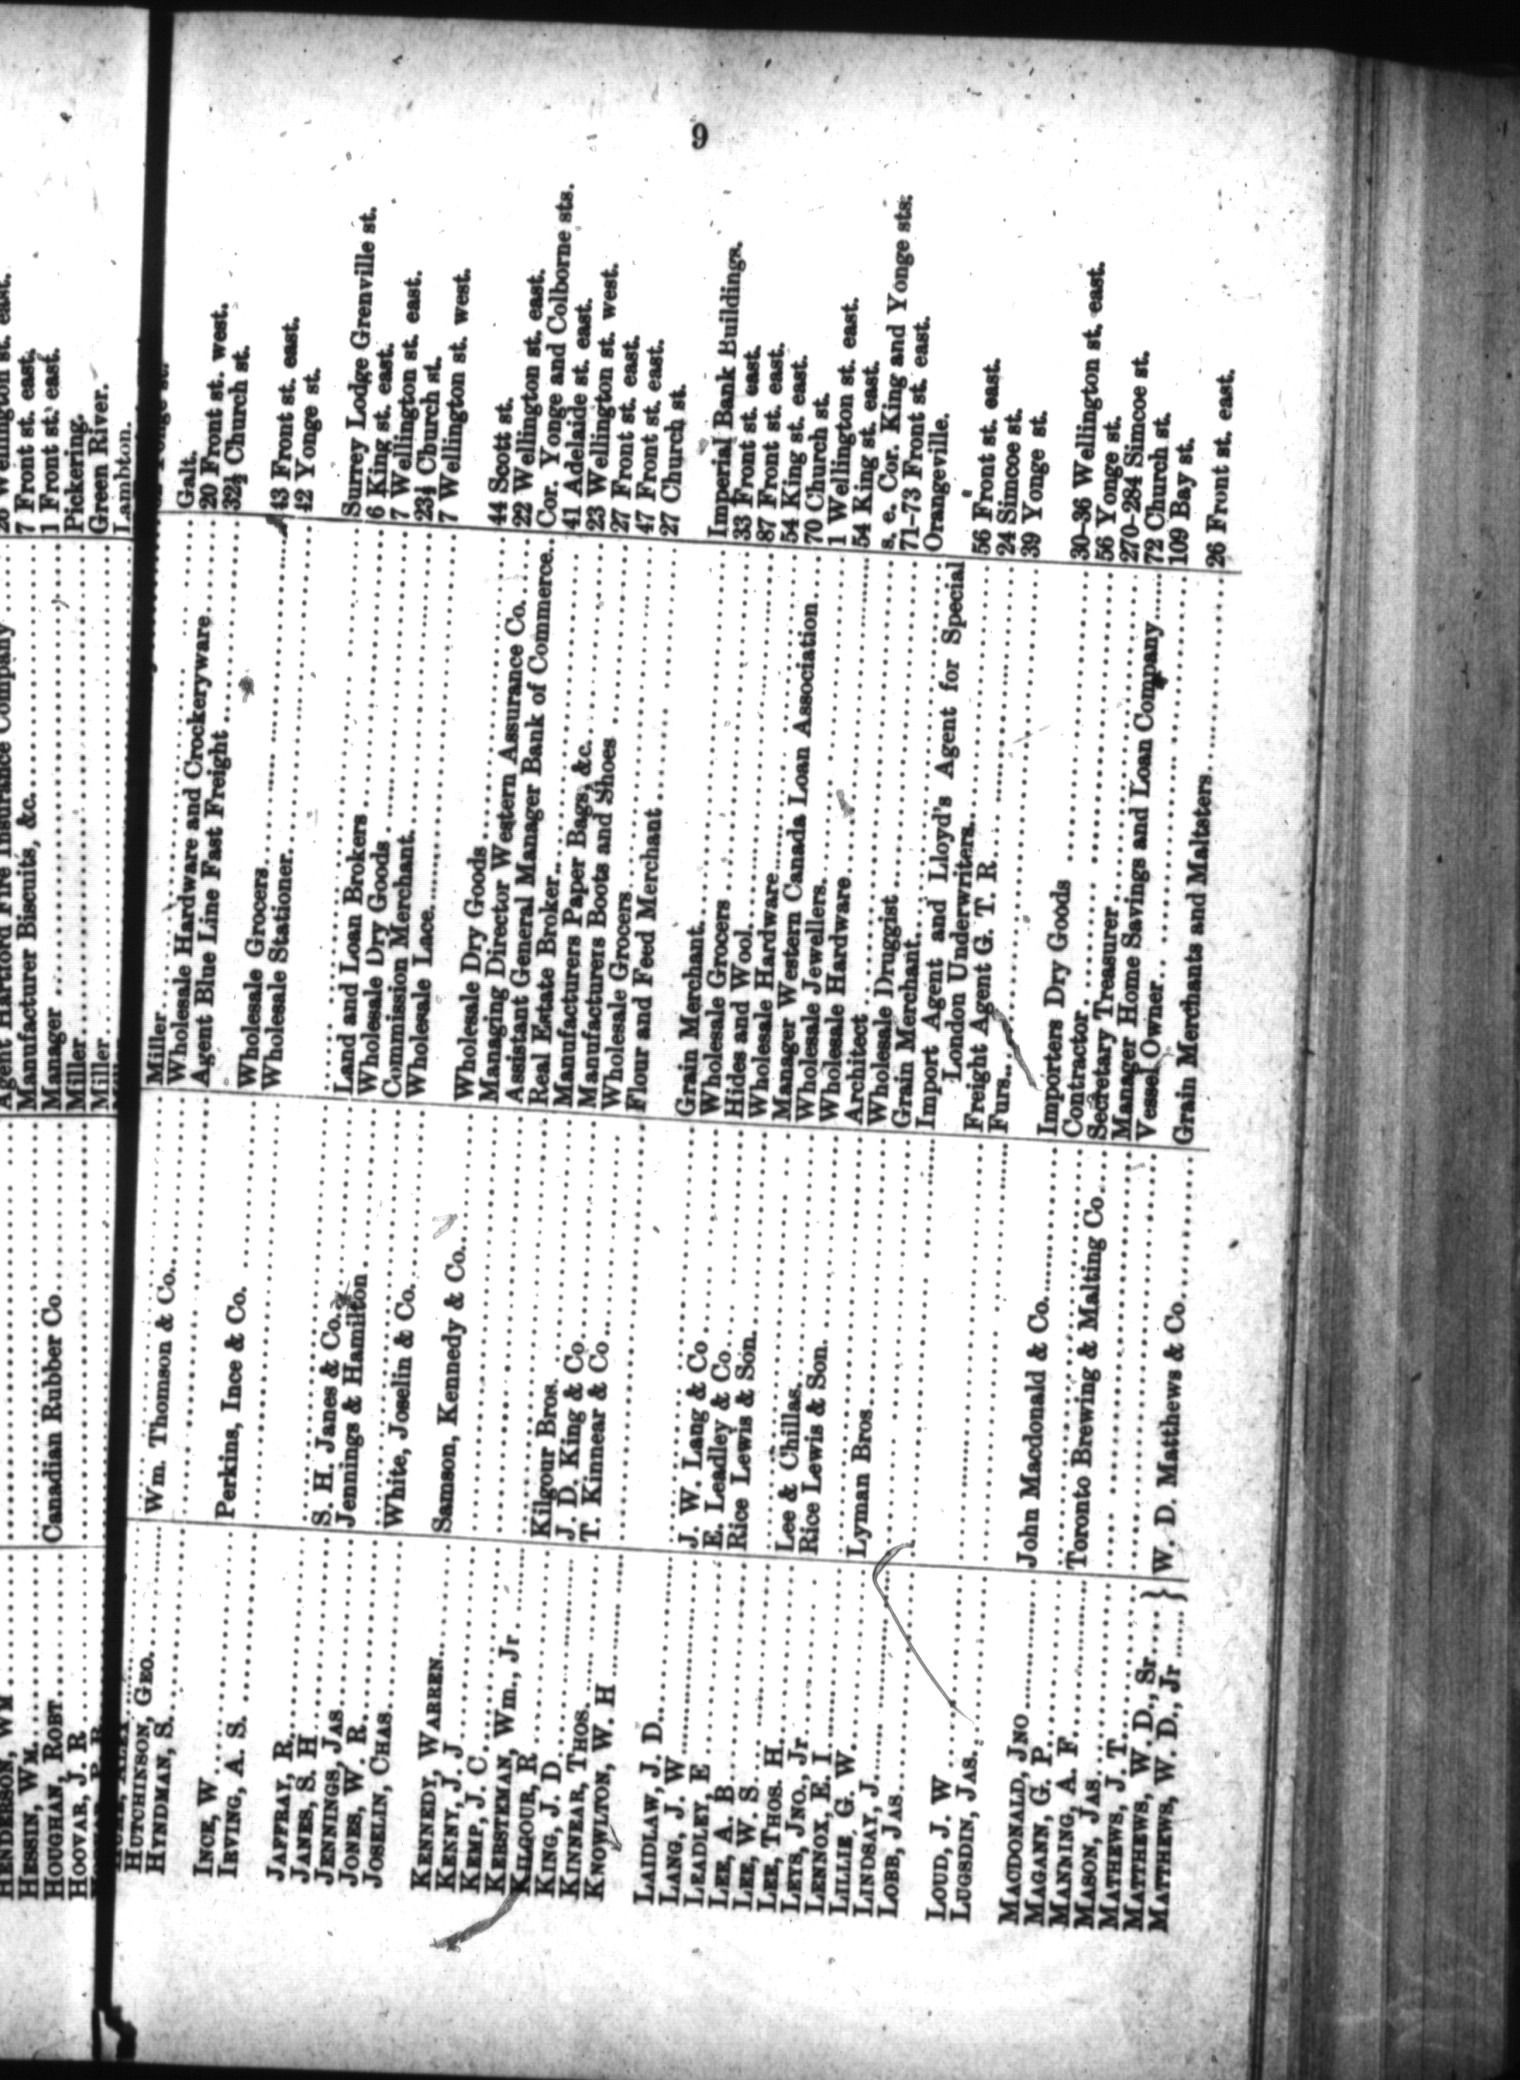 HENDERSON, WM Agent Hartford Fire Insurance Company Wellington st. east.
HESSIN, WM. Manufacturer Biscuits, &c. 7 Front st. east.
HOUGHAN, ROBT. Canadian Rubber Co Manager 1 Front st. east.
HOOVAR, J. R. Miller Pickering.
Miller Green River.
Lambton.
9
Miller Galt.
HUTCHINSON, GEO. Wm. Thomson & Co. Wholesale Hardware and Crockeryware 20 Front st. west.
HYNDMAN, S. Agent Blue Line Fast Freight 32½ Church st.
INCE, W. Perkins, Ince & Co. Wholesale Grocers 43 Front st. east.
IRVING, A. S. Wholesale Stationer. 42 Yonge st.
JAFFRAY, R. Surrey Lodge Grenville st.
JANES, S. H S. H. Janes & Co. Land and Loan Brokers 6 King st. east.
JENNINGS, JAS Jennings & Hamilton Wholesale Dry Goods 7 Wellington st. east.
JONES, W. R. Commission Merchant. 23½ Church st.
JOSELIN, CHAS. White, Joselin & Co. Wholesale Lace 7 Wellington st. west.
KENNEDY, WARREN. Samson, Kennedy & Co. Wholesale Dry Goods 44 Scott st.
KENNY, J. J. Managing Director Western Assurance Co. 22 Wellington st. east.
KEMP, J. C. Assistant General Manager Bank of Commerce. Cor. Yonge and Colborne sts.
KERSTEMAN, Wm., Jr Real Estate Broker. 41 Adelaide st. east.
KILGOUR, R Kilgour Bros. Manufacturers Paper Bags, &c. 23 Wellington st. west.
KING, J. D. J. D. King & Co. Manufacturers Boots and Shoes 27 Front st. east.
KINNEAR, THOS. T. Kinnear & Co Wholesale Grocers 47 Front st. east.
KNOWLTON, W. H Flour and Feed Merchant 27 Church st.
LAIDLAW, J. D. Grain Merchant. Imperial Bank Buildings.
LANG, J. W J. W. Lang & Co Wholesale Grocers 33 Front st. east.
LEADLEY, E E. Leadley & Co. Hides and Wool. 87 Front st. east.
LEE, A. B. Rice Lewis & Son. Wholesale Hardware 54 King st. east.
LEE, W. S. Manager Western Canada Loan Association 70 Church st.
LEE, THOS. H. Lee & Chillas. Wholesale Jewellers. 1 Wellington st. east.
LEYS, JNO., Jr Rice Lewis & Son. Wholesale Hardware 54 King st. east.
LENNOX, E. J. Architect s. e. Cor. King and Yonge sts.
LILLIE, G. W. Lyman Bros Wholesale Druggist 71–73 Front st. east.
LINDSAY, J. Grain Merchant. Orangeville.
LOBB, JAS. Import Agent and Lloyd's Agent for Special
London Underwriters. 56 Front st. east.
LOUD, J. W Freight Agent G. T. R 24 Simcoe st.
LUGSDIN, JAS. Furs. 39 Yonge st.
MACDONALD, JNO John Macdonald & Co. Importers Dry Goods 30–36 Wellington st. east.
MAGANN, G. P. Contractor. 56 Yonge st.
MANNING, A. F. Toronto Brewing & Malting Co Secretary Treasurer 270–284 Simcoe st.
MASON, JAS. Manager Home Savings and Loan Company 72 Church st.
MATHEWS, J. T. Vessel Owner. 109 Bay st.
MATTHEWS, W. D., Sr
MATTHEWS, W. D., Jr } W. D. Matthews & Co Grain Merchants and Maltsters 26 Front st. east.